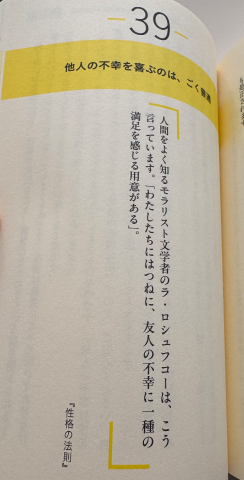 39
他人の不幸を喜ぶのは、ごく普通
人間をよく知るモラリスト文学者のラ・ロシュフコーは、こう
言っています。「わたしたちにはつねに、友人の不幸に一種の
満足を感じる用意がある」。
『性格の法則』